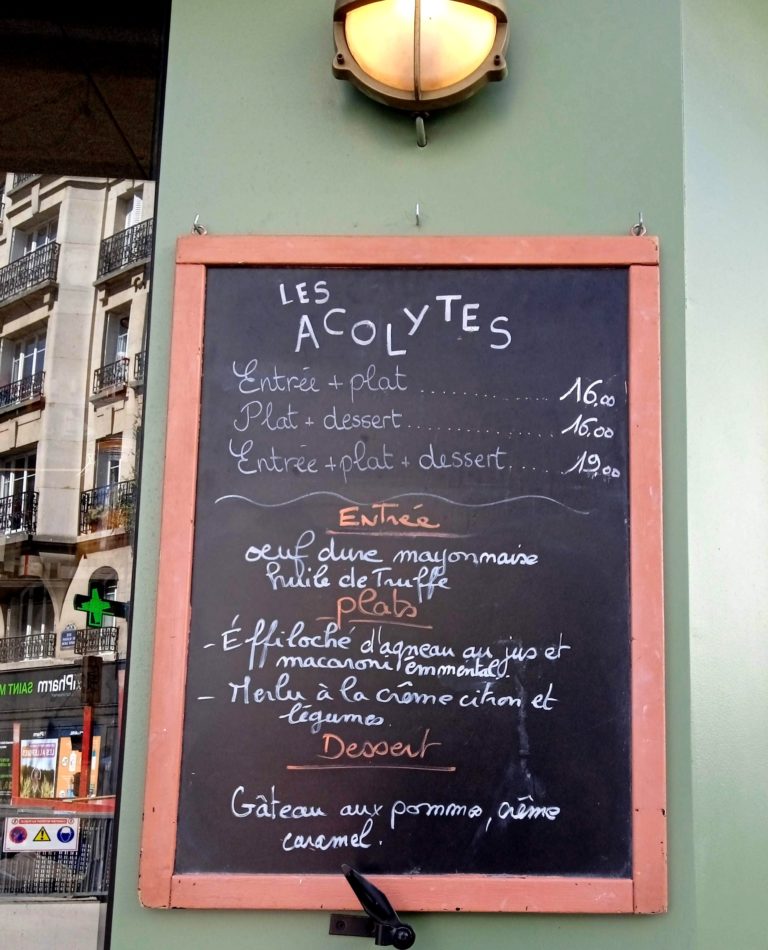 LES
ACOLYTES
Entrée + plat .................... 16,00
Plat + dessert .................... 16,00
Entrée + plat + dessert ........ 19,00
Entrée
oeuf dure mayonnaise
huile de Truffe
plats
- Éffiloché d'agneau au jus et
macaroni emmental.
- Merlu à la crême citron et
légumes.
Dessert
Gâteau aux pomme, crême
caramel.
Pharm SAINT M